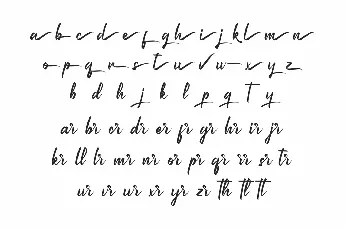 a b c d e f g h i j k l m n
o p q r s t u v w x y z
b d h j k l p q T y
ar br cr dr er fr gr hr ir jr
kr ll lr mr nr or pr qr rr sr tr
ur vr wr xr yr zr th tl tt